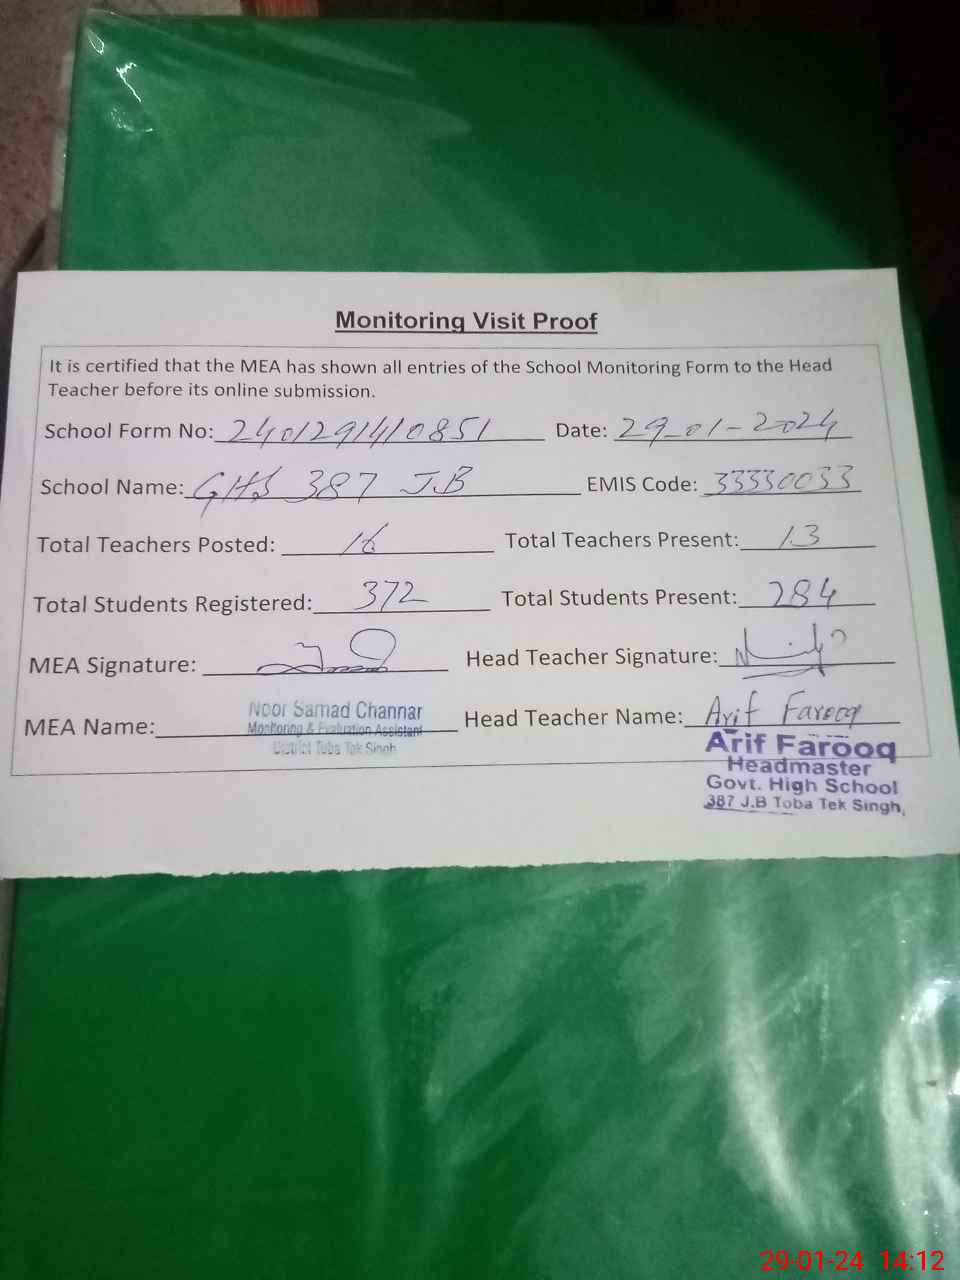 Monitoring Visit Proof
It is certified that the MEA has shown all entries of the School Monitoring Form to the Head
Teacher before its online submission.
School Form No: 2401291410851 Date: 29-01-2024
School Name: GHS 387 J.B EMIS Code: 33330033
Total Teachers Posted: 16 Total Teachers Present: 13
Total Students Registered: 372 Total Students Present: 284
MEA Signature: Head Teacher Signature:
MEA Name: Noor Samad Channar Head Teacher Name: Arif Farooq
Monitoring & Evaluation Assistant
District Toba Tek Singh
Arif Farooq
Headmaster
Govt. High School
387 J.B Toba Tek Singh,
29-01-24 14:12